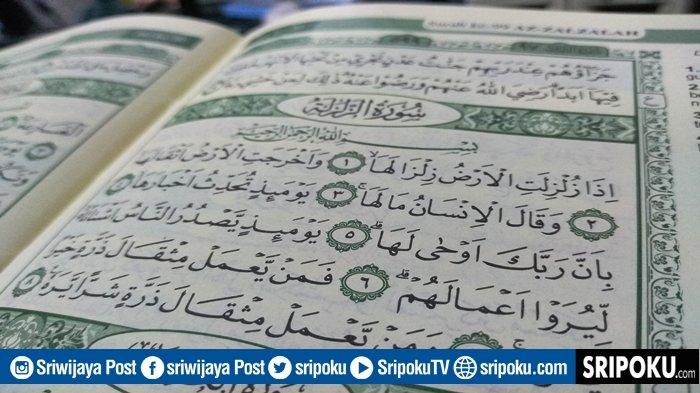 AZ-ZALZALAH
جَزَاۤؤُهُمْ عِنْدَ رَبِّهِمْ جَنّٰتُ عَدْنٍ تَجْرِيْ مِنْ تَحْتِهَا
فِيْهَآ اَبَدًا رَضِيَ اللّٰهُ عَنْهُمْ وَرَضُوْا عَنْهُ ذٰلِكَ لِمَنْ خَشِيَ
سُوْرَةُ الزَّلْزَلَةِ
بِسْمِ اللّٰهِ الرَّحْمٰنِ الرَّحِيْمِ
اِذَا زُلْزِلَتِ الْاَرْضُ زِلْزَالَهَاۙ ١ وَاَخْرَجَتِ الْاَرْضُ اَثْقَالَهَا
٢ وَقَالَ الْاِنْسَانُ مَا لَهَاۚ ٣ يَوْمَىِٕذٍ تُحَدِّثُ اَخْبَارَهَا ٤
بِاَنَّ رَبَّكَ اَوْحٰى لَهَاۗ ٥ يَوْمَىِٕذٍ يَّصْدُرُ النَّاسُ اَشْتَاتًا
لِّيُرَوْا اَعْمَالَهُمْۗ ٦ فَمَنْ يَّعْمَلْ مِثْقَالَ ذَرَّةٍ خَيْرًا
وَمَنْ يَّعْمَلْ مِثْقَالَ ذَرَّةٍ شَرًّا يَّرَهٗ ٨
Sriwijaya Post sriwijaya Post sripoku SripokuTV sripoku.com
SRIPOKU.com